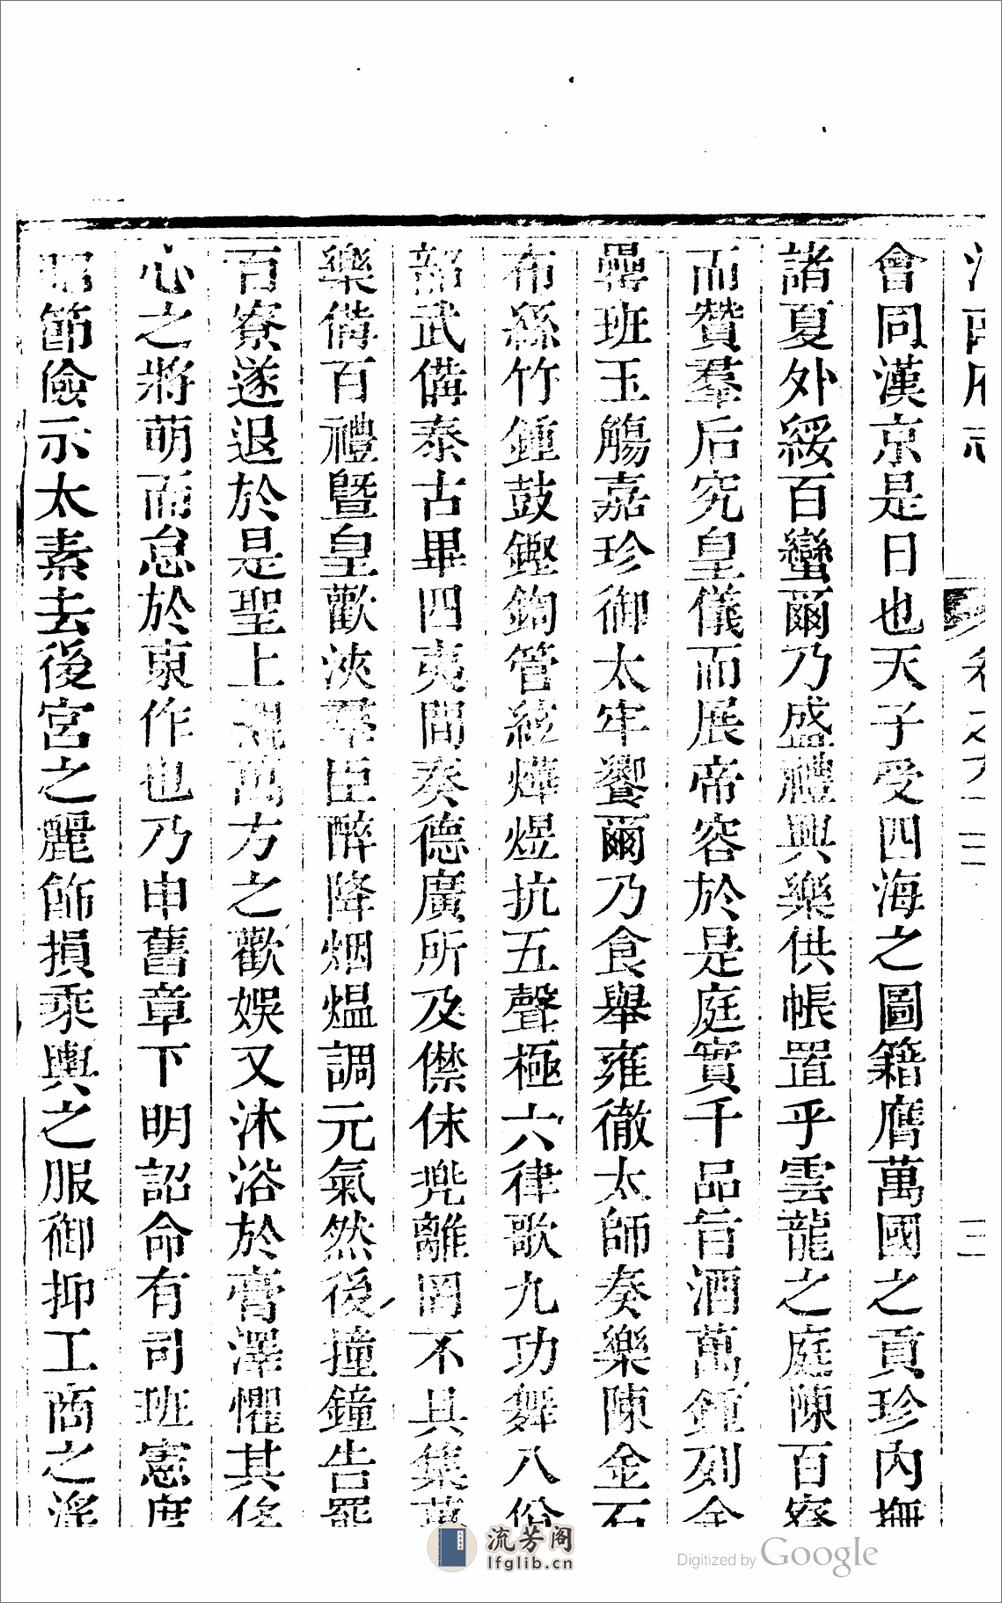 河南府志 卷之九十三 三
會同漢京是日也天子受四海之圖籍膺萬國之貢珍內撫
諸夏外綏百蠻爾乃盛禮興樂供帳置乎雲龍之庭陳百寮
而贊羣后究皇儀而展帝容於是庭實千品旨酒萬鍾列金
罍班玉觴嘉珍御太牢饗爾乃食舉雍徹太師奏樂陳金石
布絲竹鍾鼓鏗鍧管絃燁煜抗五聲極六律歌九功舞八佾
韶武備泰古畢四夷間奏德廣所及僸佅兠離罔不具集萬
樂備百禮曁皇歡浹羣臣醉降烟熅調元氣然後撞鐘告罷
百寮遂退於是聖上覩萬方之歡娛又沐浴於膏澤懼其侈
心之將萌而怠於東作也乃申舊章下明詔命有司班憲度
昭節儉示太素去後宮之麗飾損乘輿之服御抑工商之淫
流芳阁
lfglib.cn
Digitized by Google